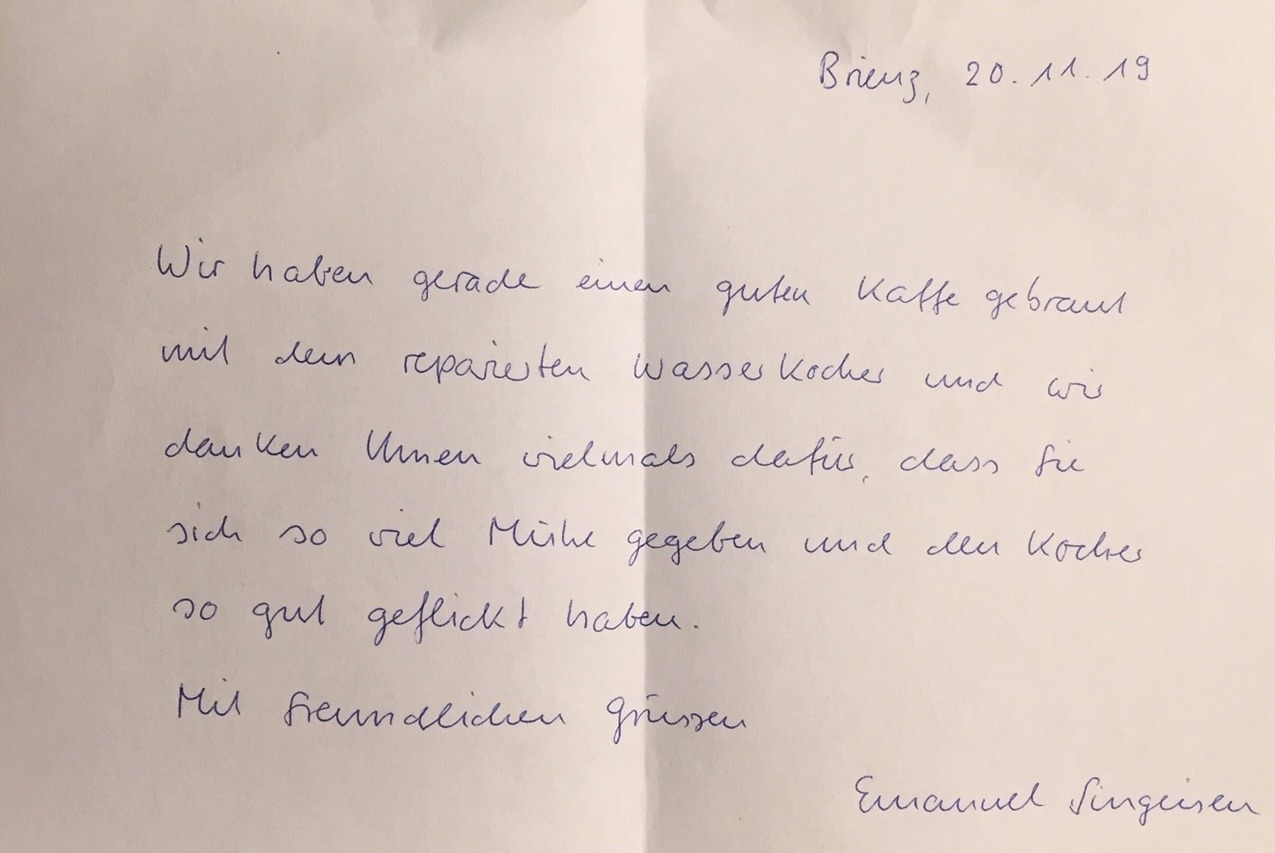 Brienz, 20.11.19
Wir haben gerade einen guten Kaffe gebraut
mit dem reparierten Wasserkocher und wir
danken Ihnen vielmals dafür, dass Sie
sich so viel Mühe gegeben und den Kocher
so gut geflickt haben.
Mit freundlichen Grüssen
Emanuel Singeisen